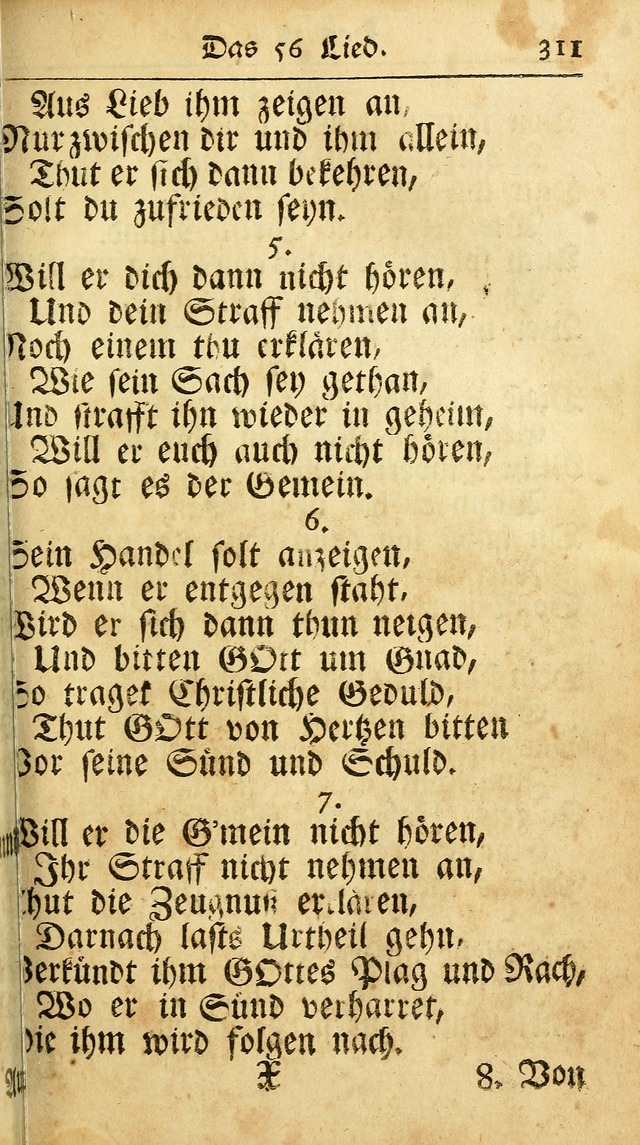 Das 56 Lied. 311
Aus Lieb ihm zeigen an,
Nur zwischen dir und ihm allein,
Thut er sich dann bekehren,
Solt du zufrieden seyn.
5.
Will er dich dann nicht hören,
Und dein Straff nehmen an,
Noch einem thu erklären,
Wie sein Sach sey gethan,
Und strafft ihn wieder in geheim,
Will er euch auch nicht hören,
So sagt es der Gemein.
6.
Sein Handel solt anzeigen,
Wenn er entgegen staht,
Wird er sich dann thun neigen,
Und bitten GOtt um Gnad,
So traget Christliche Geduld,
Thut GOtt von Hertzen bitten
Vor seine Sünd und Schuld.
7.
Will er die G'mein nicht hören,
Ihr Straff nicht nehmen an,
Thut die Zeugnuß erklären,
Darnach lasts Urtheil gehn,
Verkündt ihm GOttes Plag und Rach,
Wo er in Sünd verharret,
Die ihm wird folgen nach.
X 8. Von